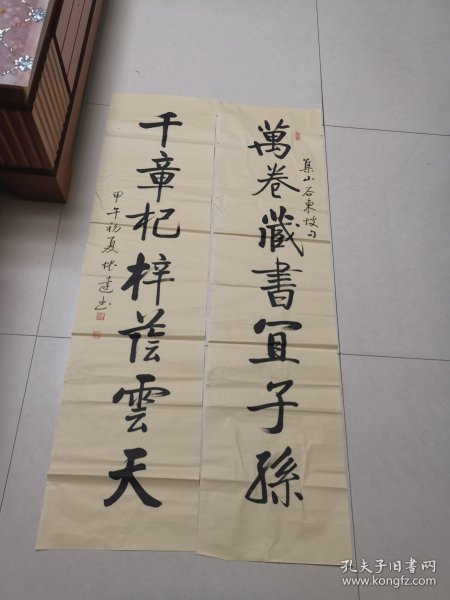 萬卷藏書宜子孫
集山谷東坡句
千章杞梓蔭雲天
甲午初夏
孔夫子旧书网
www.kongfz.com